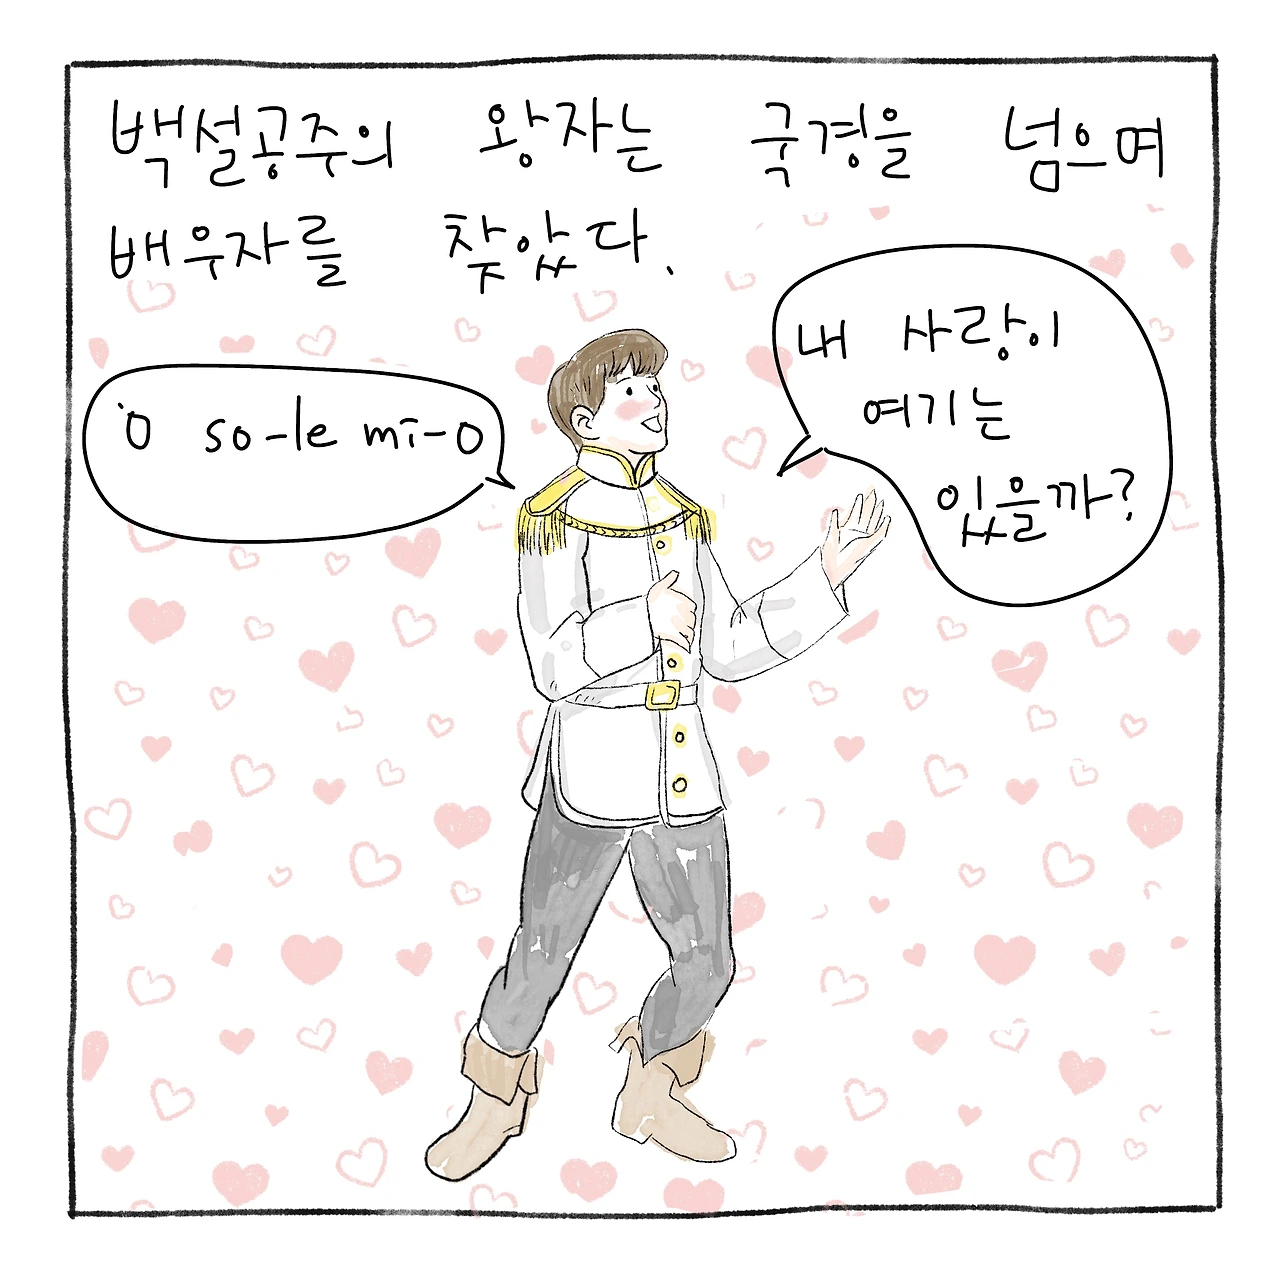 백설공주의 왕자는 국경을 넘으며
배우자를 찾았다.
'O so-le mi-o
내 사랑이
여기는
있을까?